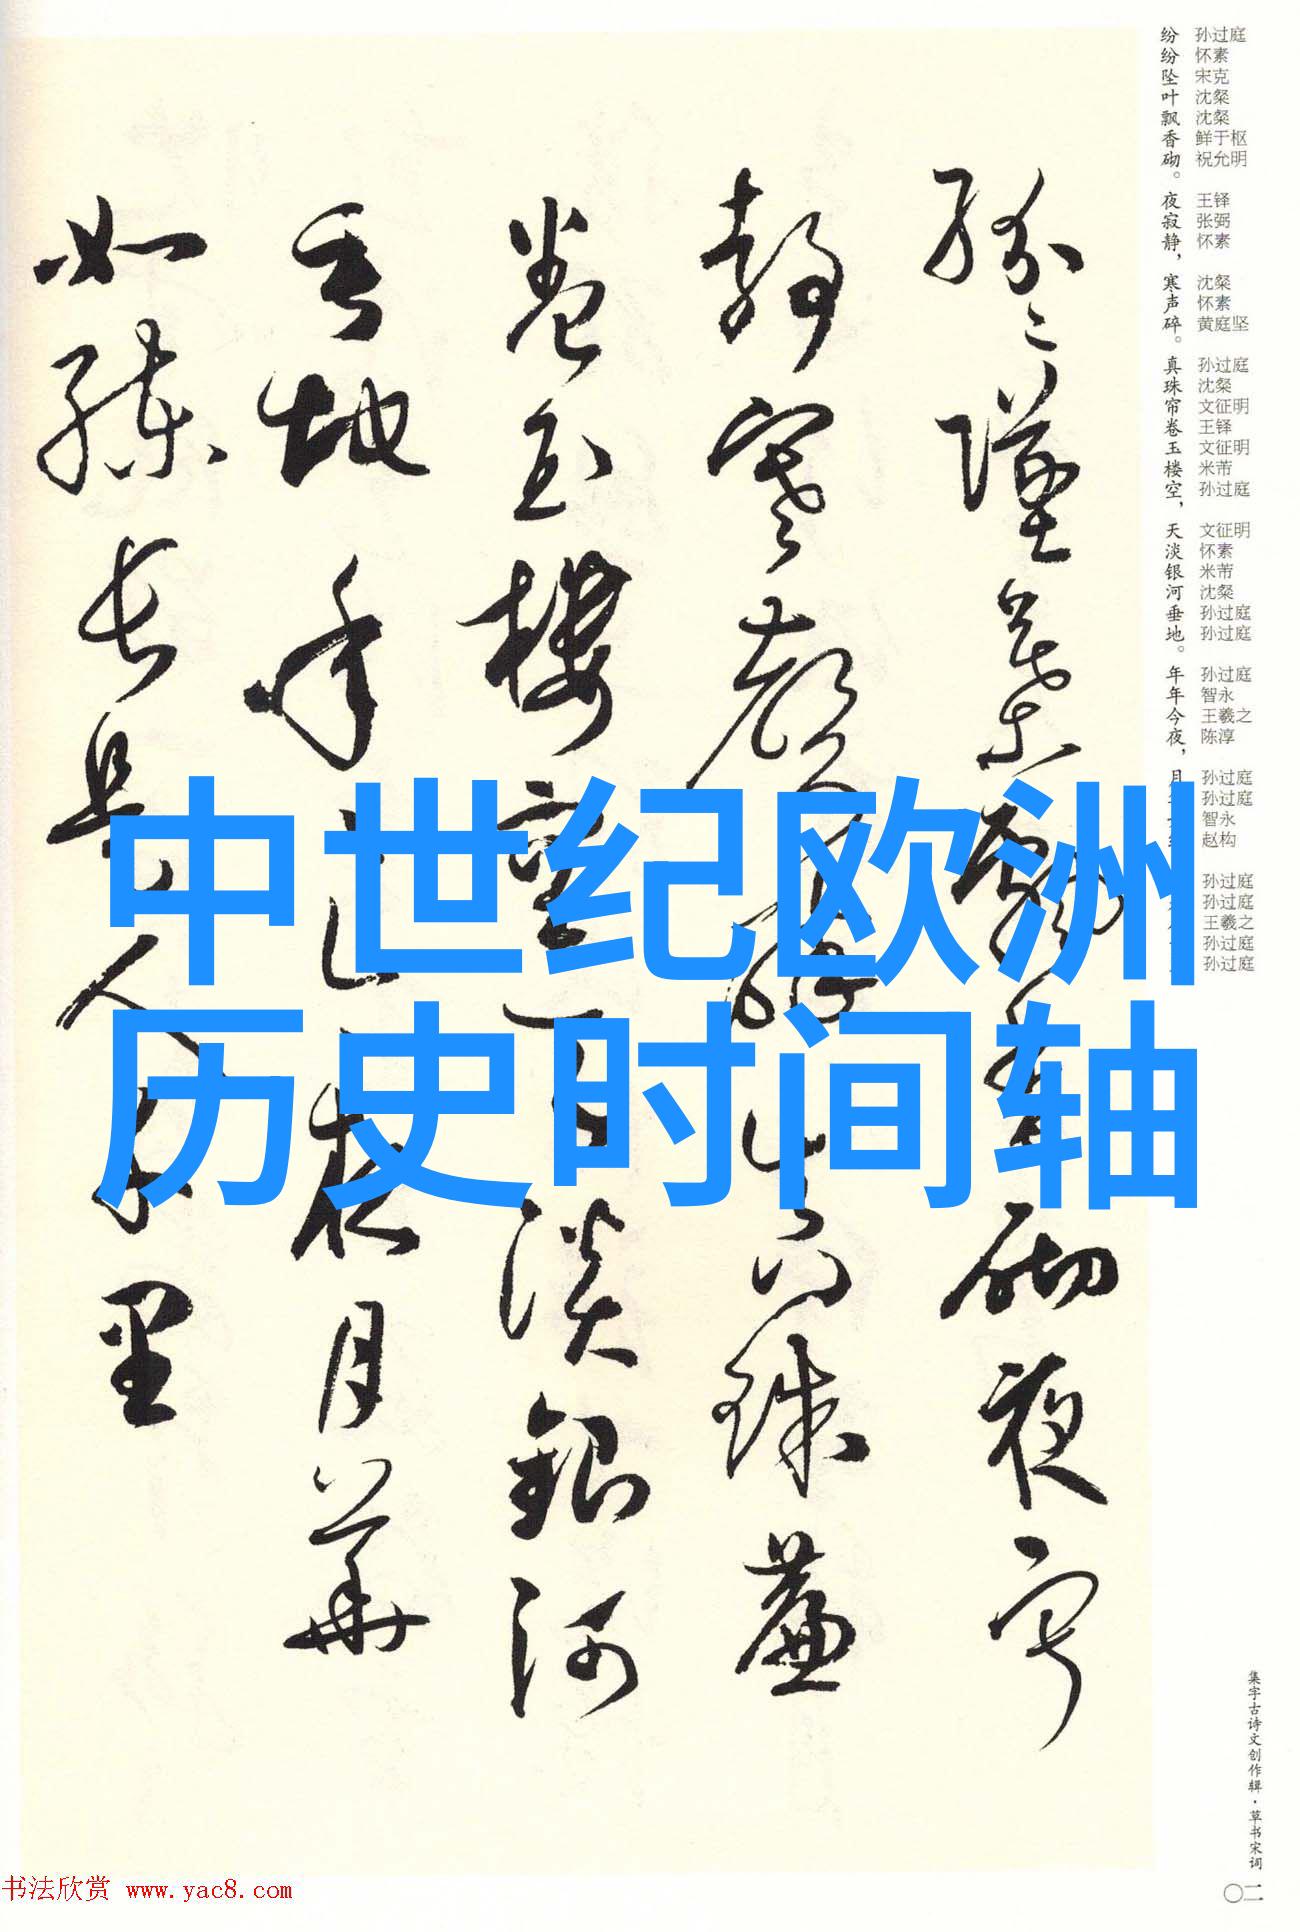 中世纪欧洲
历史时间轴
纷纷坠叶飘香砌。夜寂静，寒声碎。真珠帘卷玉楼空，天淡银河垂地。年年今夜，月
孙过庭
怀素
宋克
沈粲
沈粲
鲜于枢
祝允明
王铎
张弼
怀素
沈粲
怀素
黄庭坚
孙过庭
沈粲
文征明
王铎
文征明
米芾
孙过庭
文征明
怀素
米芾
沈粲
孙过庭
孙过庭
孙过庭
智永
王羲之
陈淳
孙过庭
孙过庭
智永
赵构
孙过庭
孙过庭
王羲之
孙过庭
孙过庭
紛〻墜葉飄香砌夜寂
靜寒聲碎真珠簾
卷玉樓空天淡銀河
垂地年〻今夜月華
如練長是人千里
集字古诗文创作辑·草书宋词
〇二
书法欣赏 www.yac8.com